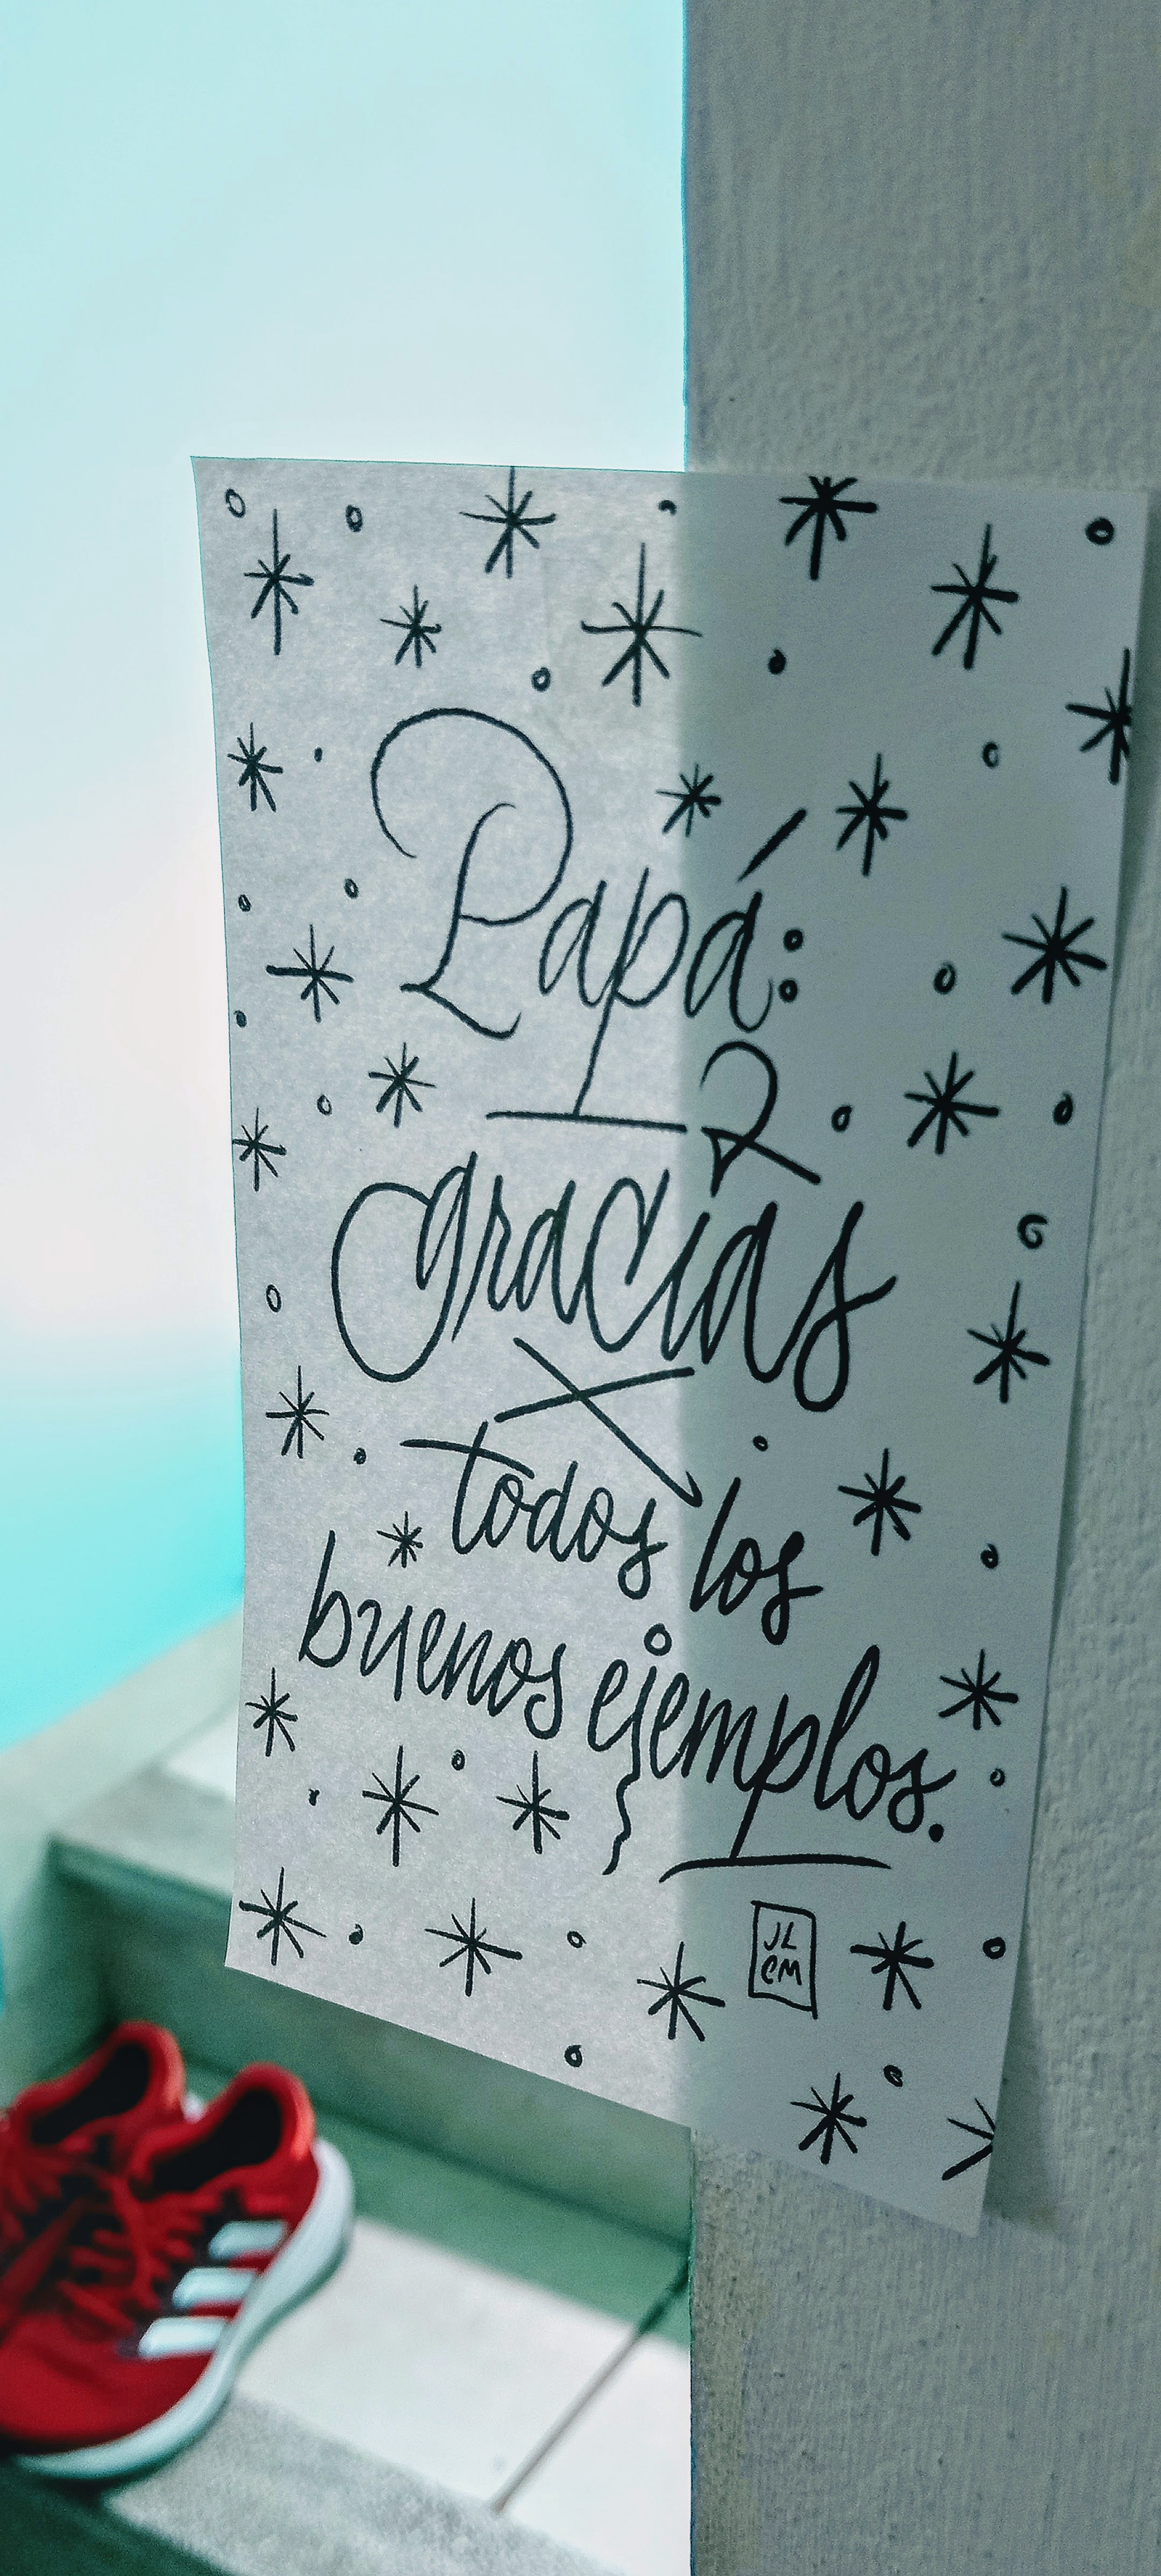 Papá:
gracias
X
todos los
buenos ejemplos.
JL
CM